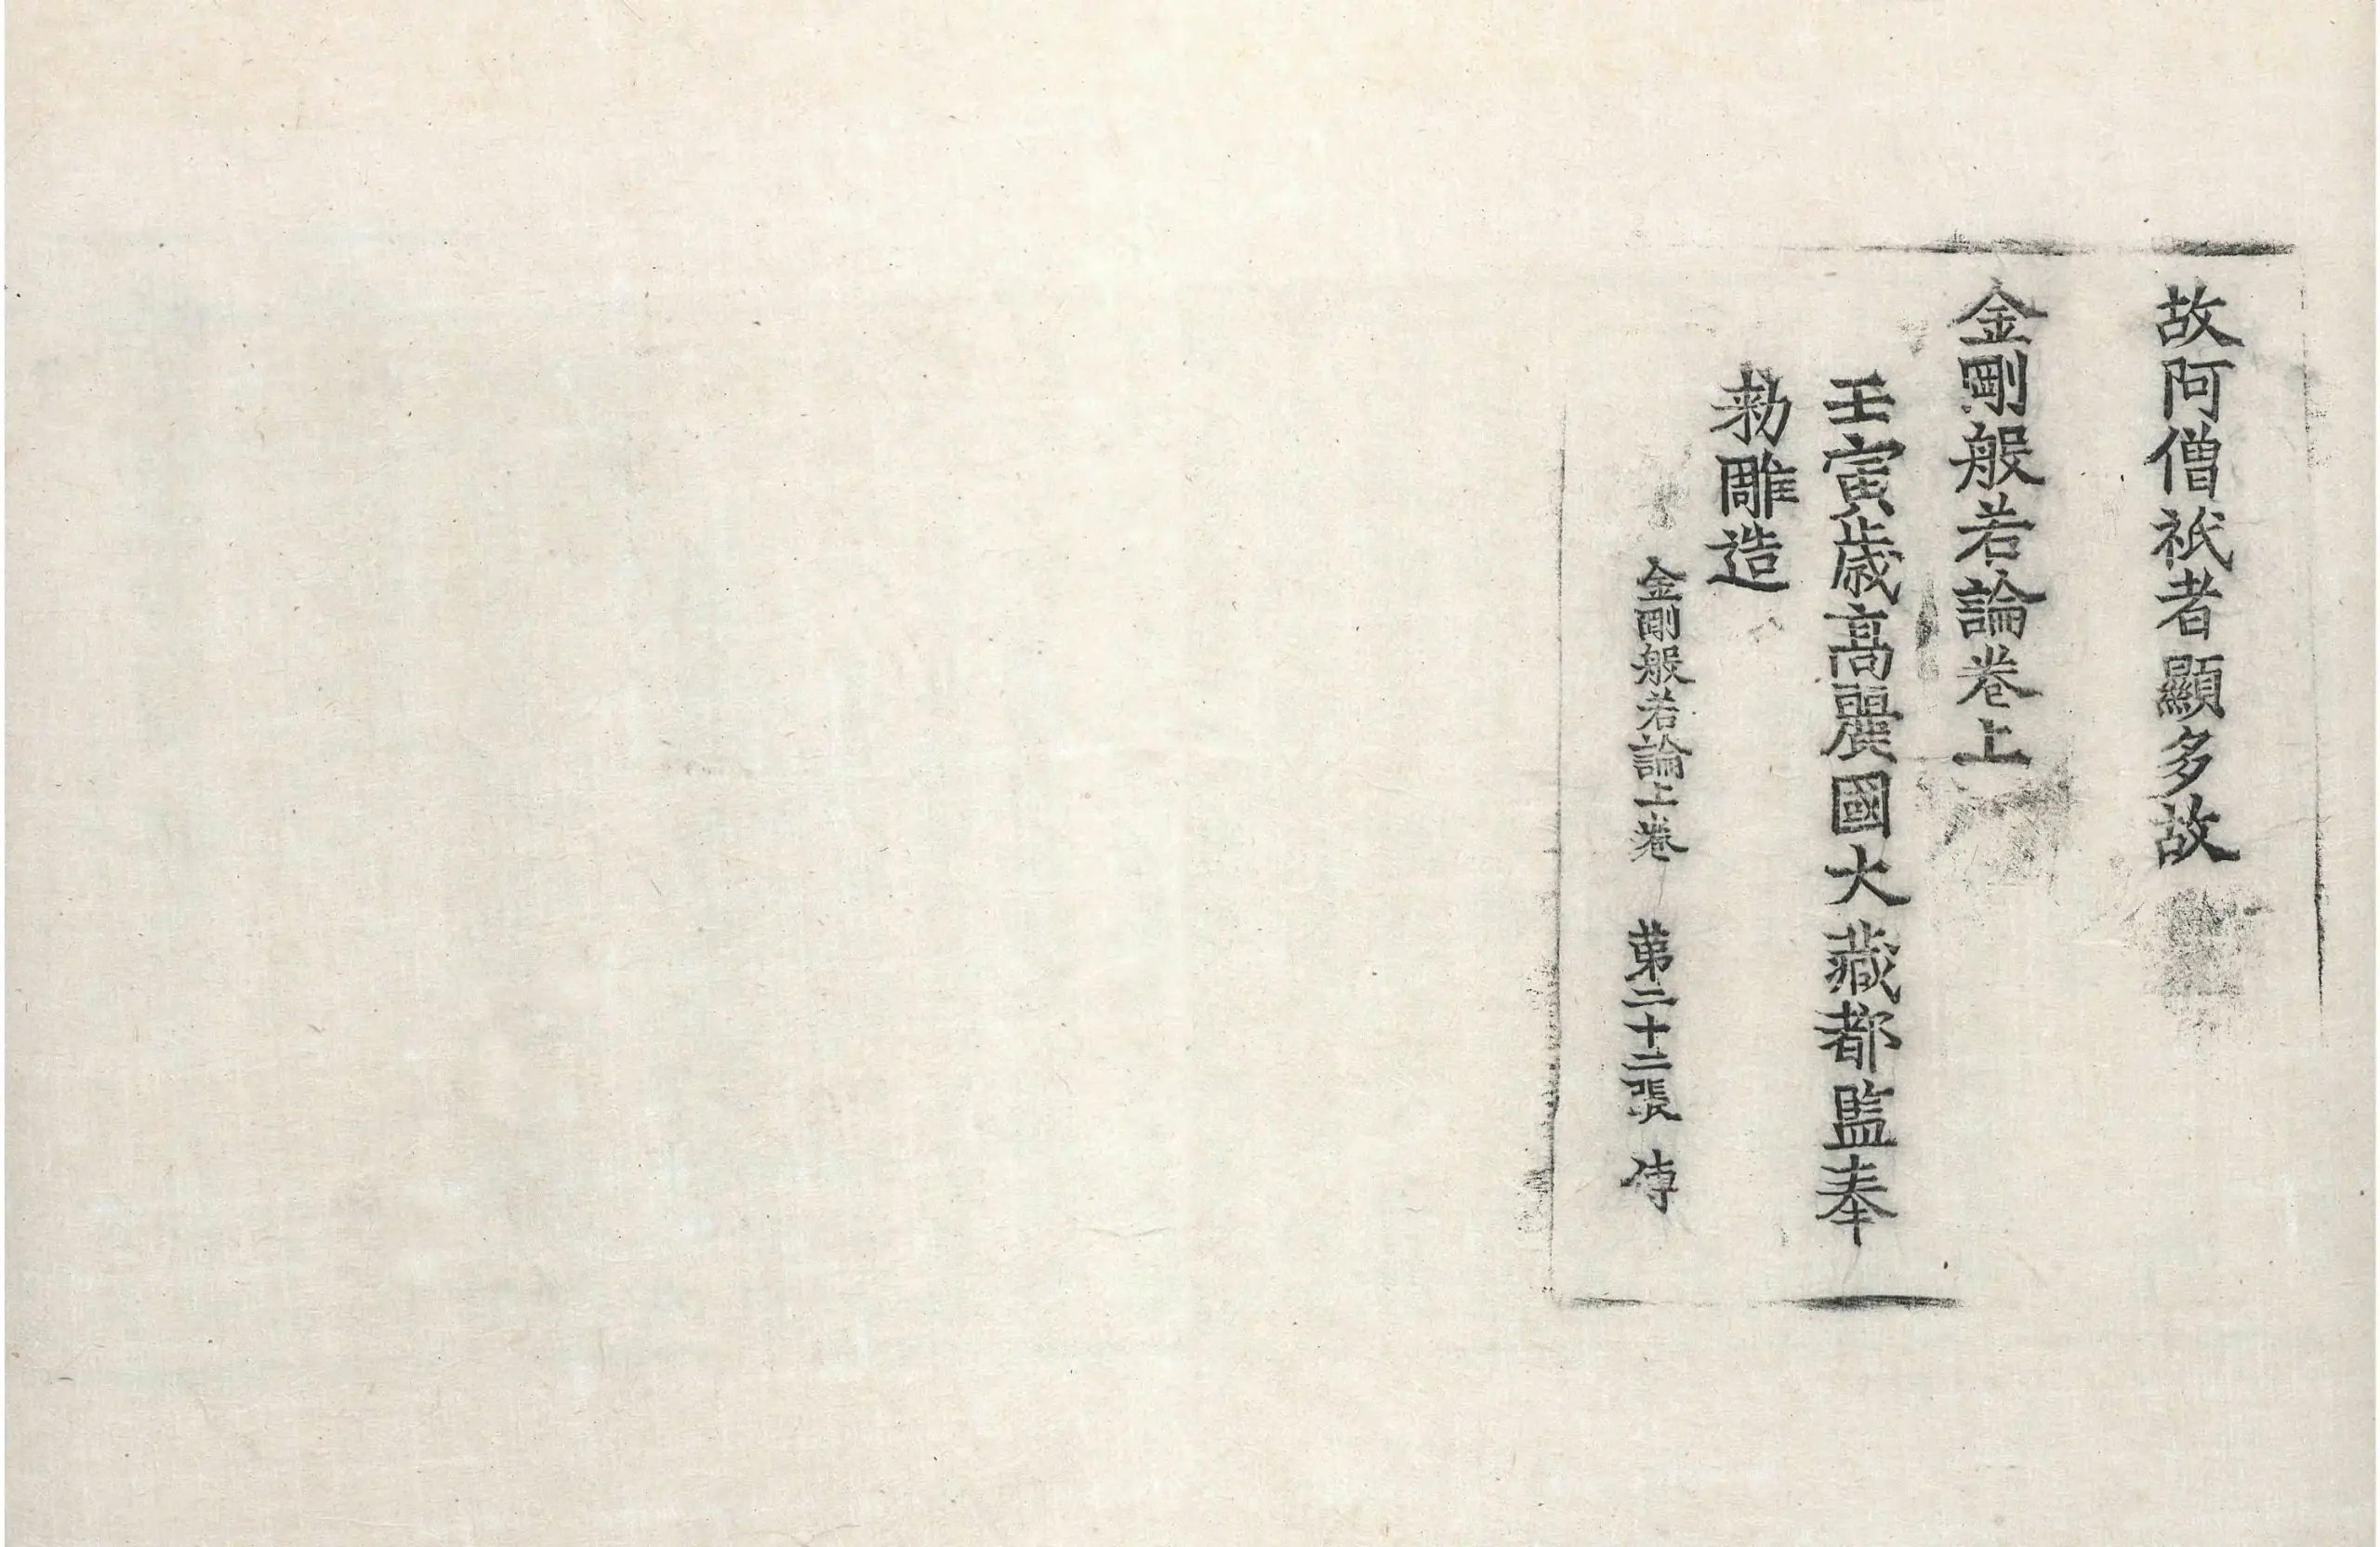 故阿僧祇者顯多故
金剛般若論卷上
壬寅歳高麗國大藏都監奉
勑雕造
金剛般若論上卷 第二十二張 傳